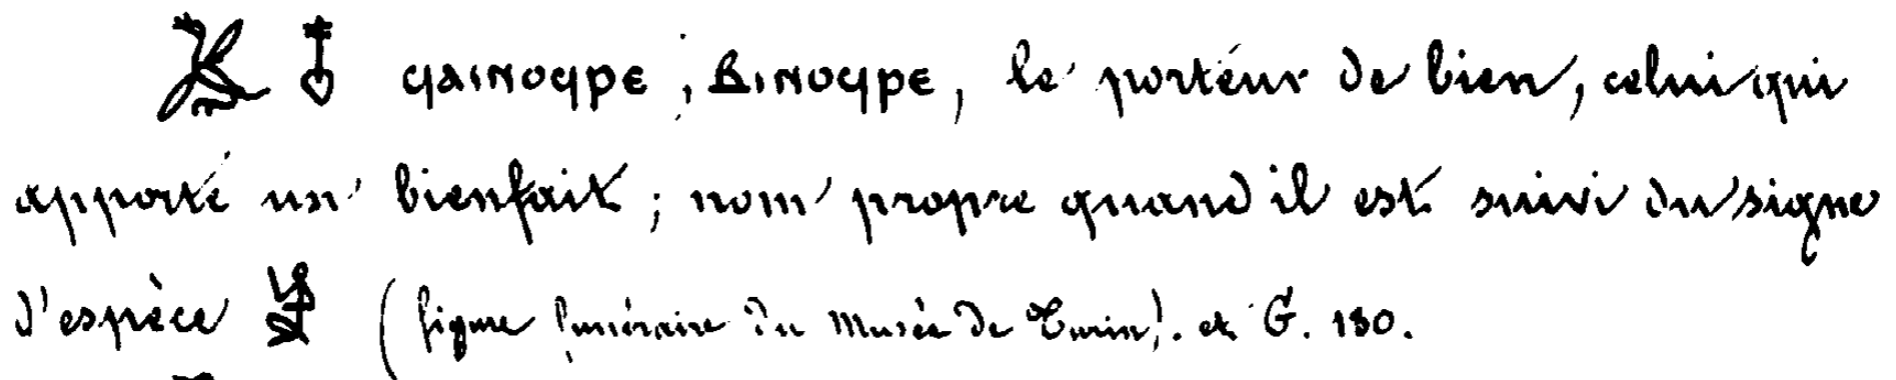 𓅯 𓄤 ϥⲁⲓⲛⲟϥⲣⲉ, ⲃⲓⲛⲟϥⲣⲉ, le porteur de bien, celui qui
apporte un bienfait; nom propre quand il est suivi du signe
d'espèce (figure funéraire du Musée de Turin). et G. 130.